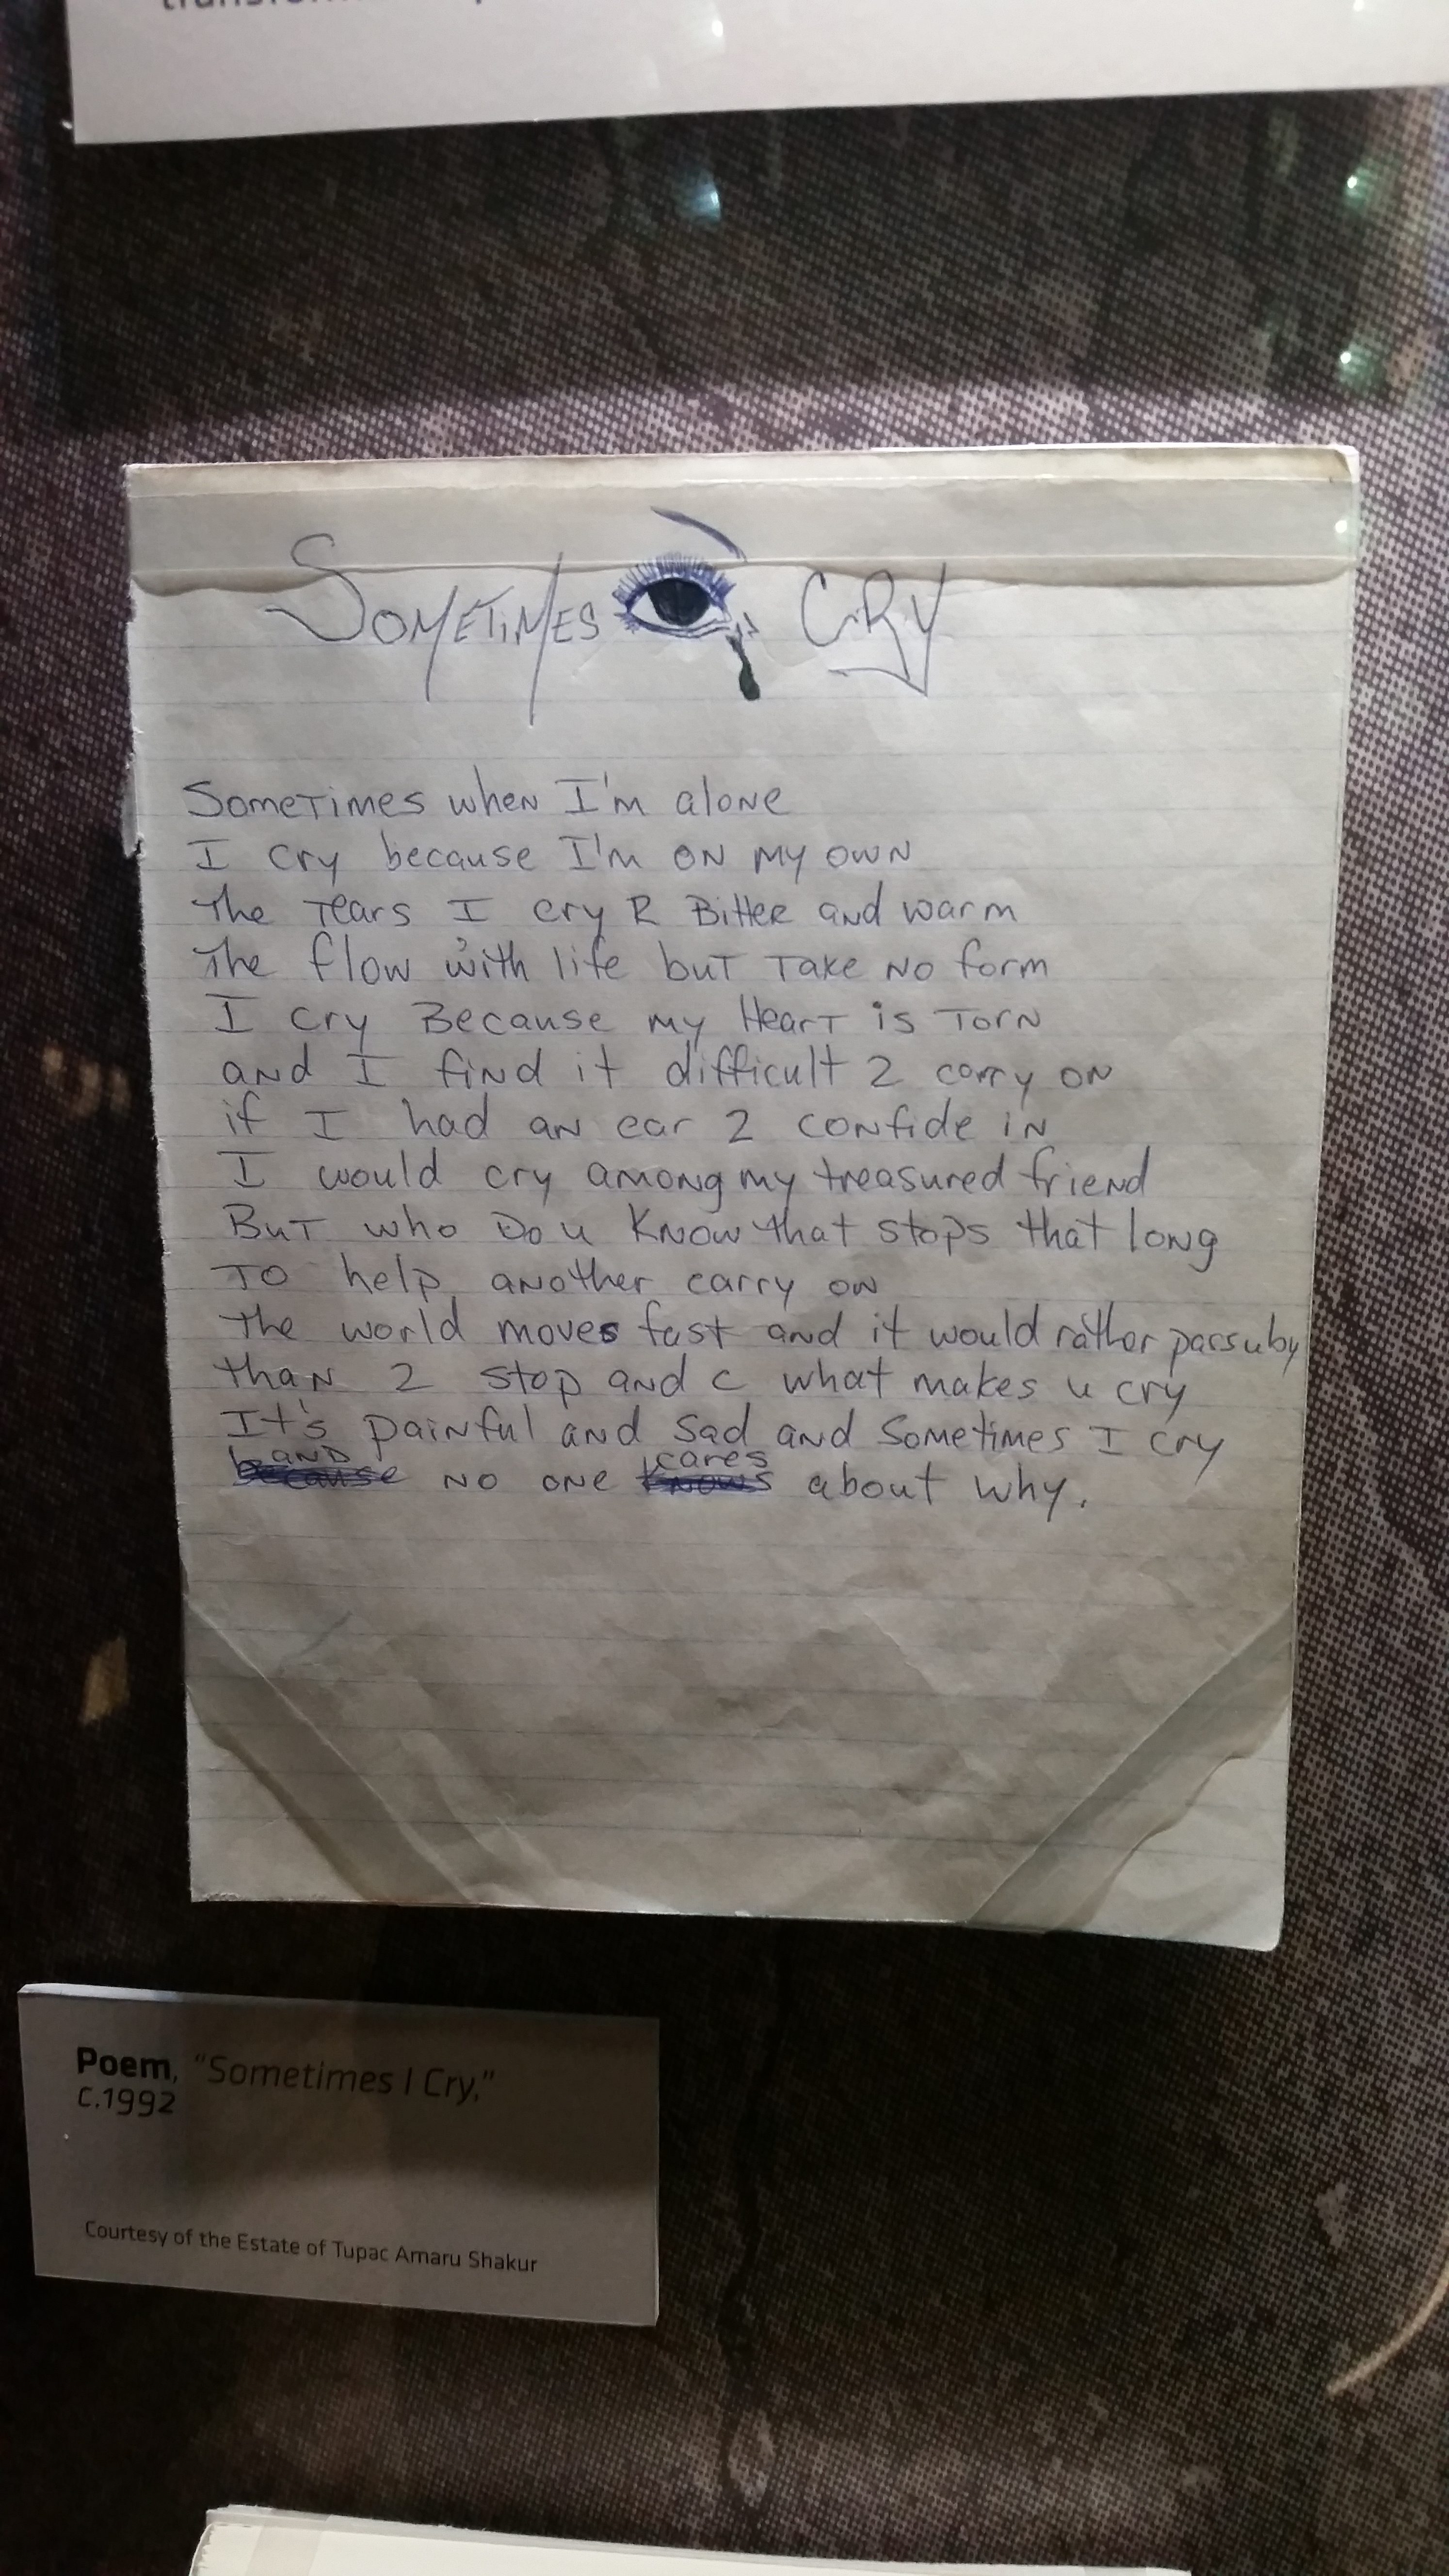 SOMETIMES CRY
Sometimes when I'm alone
I cry because I'm on my own
The Tears I cry R Bitter and warm
The flow with life but Take No form
I cry Because my Heart is Torn
and I find it difficult 2 carry on
if I had an ear 2 confide in
I would cry among my treasured friend
But who Do u Know that stops that long
To help another carry on
The world moves fast and it would rather pass u by
than 2 stop and c what makes u cry
It's painful and sad and sometimes I cry
because AND no one knows cares about why.
Poem, “Sometimes I Cry,”
c.1992
Courtesy of the Estate of Tupac Amaru Shakur